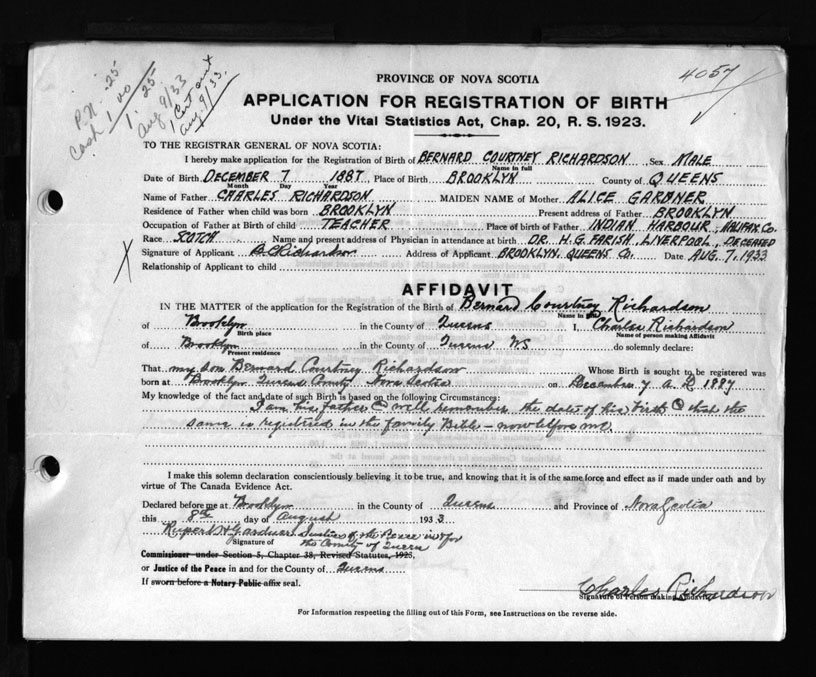 P.N. .25
Cash 1.00
1.25
Aug 9/33
1 Cert sent
Aug. 9/33.
4057
PROVINCE OF NOVA SCOTIA
APPLICATION FOR REGISTRATION OF BIRTH
Under the Vital Statistics Act, Chap. 20, R. S. 1923.
TO THE REGISTRAR GENERAL OF NOVA SCOTIA:
I hereby make application for the Registration of Birth of BERNARD COURTNEY RICHARDSON Sex MALE
Name in full
Date of Birth DECEMBER 7 1887 Place of Birth BROOKLYN County of QUEENS
Month Day Year
Name of Father CHARLES RICHARDSON MAIDEN NAME of Mother ALICE GARDNER
Residence of Father when child was born BROOKLYN Present address of Father BROOKLYN
Occupation of Father at Birth of child TEACHER Place of birth of Father INDIAN HARBOUR, HALIFAX CO.
Race SCOTCH Name and present address of Physician in attendance at birth DR. H.G. FARISH, LIVERPOOL, DECEASED
X Signature of Applicant B.C. Richardson Address of Applicant BROOKLYN, QUEENS CO. Date AUG. 7, 1933
Relationship of Applicant to child
AFFIDAVIT
IN THE MATTER of the application for the Registration of the Birth of Bernard Courtney Richardson
Name in full
of Brooklyn in the County of Queens I, Charles Richardson
Birth place Name of person making Affidavit
of Brooklyn in the County of Queens NS do solemnly declare:
Present residence
That my son Bernard Courtney Richardson Whose Birth is sought to be registered was
born at Brooklyn Queens County Nova Scotia on December 7 A.D 1887
My knowledge of the fact and date of such Birth is based on the following Circumstances:
I am his father & well remember the date of his birth & that the
same is registered in the family Bible - now before me.
I make this solemn declaration conscientiously believing it to be true, and knowing that it is of the same force and effect as if made under oath and by
virtue of The Canada Evidence Act.
Declared before me at Brooklyn in the County of Queens and Province of Nova Scotia
this 8th day of August 1933
Rupert H Gardner Justice of the Peace in & for
Signature of the County of Queens
Commissioner under Section 5, Chapter 38, Revised Statutes, 1923,
or Justice of the Peace in and for the County of Queens
If sworn before a Notary Public affix seal.
Charles Richardson
Signature of Person making Affidavit
For Information respecting the filling out of this Form, see Instructions on the reverse side.